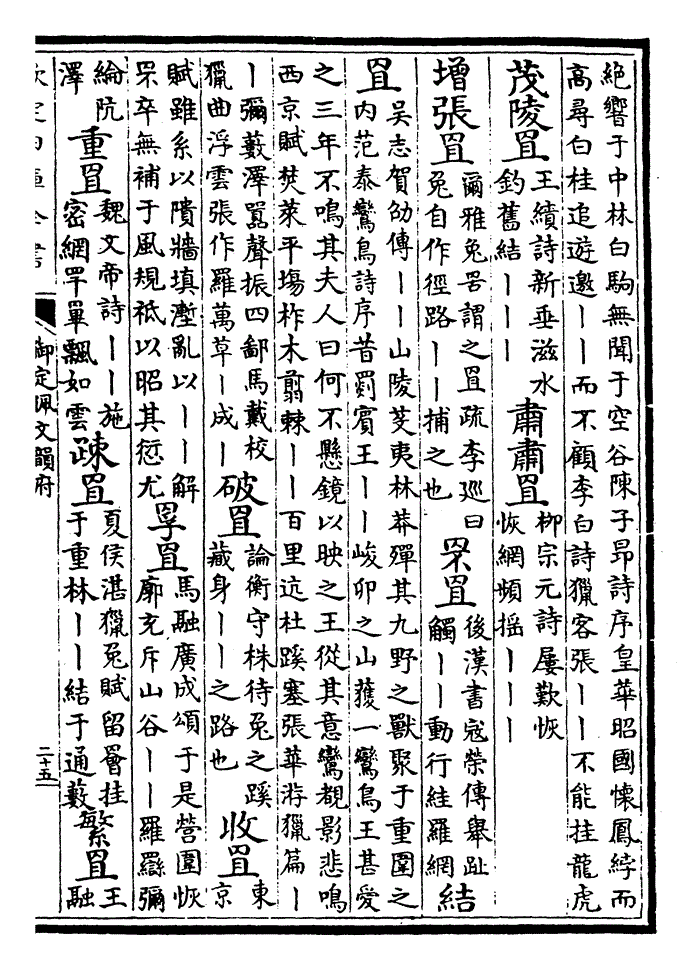 絶響于中林白駒無聞于空谷陳子昻詩序皇華昭國懷鳳綍而
高尋白桂追遊邀丨丨而不顧李白詩獵客張丨丨不能挂龍虎
茂陵罝
王績詩新垂滋水
釣舊結丨丨丨
肅肅罝
柳宗元詩屢歎恢
恢網頻摇丨丨丨
增張罝
爾雅兔罟謂之罝疏李巡曰
兔自作徑路丨丨捕之也
罘罝
後漢書寇榮傳舉趾
觸丨丨動行絓羅網
結
罝
吳志賀劭傳丨丨山陵芟夷林莽殫其九野之獸聚于重圍之
内范泰鸞鳥詩序昔罽賓王丨丨峻卯之山獲一鸞鳥王甚愛
之三年不鳴其夫人曰何不懸鏡以映之王從其意鸞覩影悲鳴
西京賦焚萊平塲柞木翦棘丨丨百里迒杜蹊塞張華游獵篇丨
丨彌藪澤囂聲振四鄙馬戴校
獵曲浮雲張作羅萬草丨成丨
破罝
論衡守株待兔之蹊
藏身丨丨之路也
收罝
東
京
賦雖系以隤牆填壍亂以丨丨解
罘卒無補于風規祗以昭其愆尤
罦罝
馬融廣成頌于是營圍恢
廓充斥山谷丨丨羅羉彌
綸阬
澤
重罝
魏文帝詩丨丨施
密網罕罼飄如雲
疎罝
夏侯湛獵兔賦留罾挂
于重林丨丨結于通藪
繁罝
王
融
欽定四庫全書
御定佩文韻府
二十五